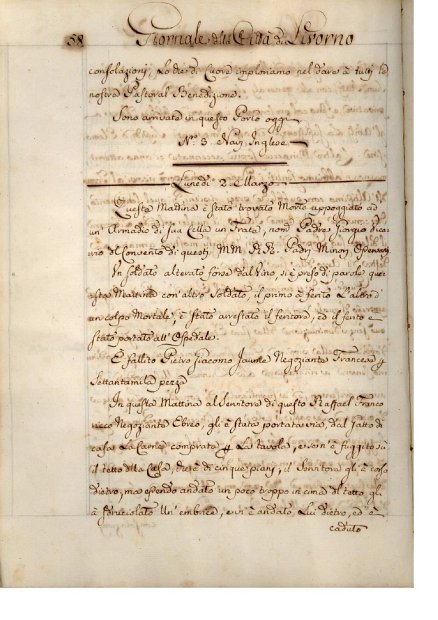 58. Giornale della Città di Livorno
consolazioni, Lo che di Cuore imploriamo nel dare à tutti la
nostra Pastoral Benedizione.
Sono arrivate in questo Porto oggi
N.º 3. Navi Inglese
Lunedì 2. Marzo
Questa Mattina è stato trovato Morto appoggiato ad
un' Armadio di sua Cella un Frate, nom.º Padre Giorgio
del Convento di questi MM. RR. Padri Minori Osservanti
Un Soldato alterato forse dal Vino, si è preso di parole que
sta Mattina con' altro Soldato, il primo à ferito L'altro d'
un colpo Mortale, è stato arrestato il feritore, ed il ferito è
stato portato all' Ospedale.
È fallito Pietro Giacomo Jaume Negoziante Francese p
Settantamila pezze
In questa Mattina al Servitore di questo Raffael Franco
ricco Negoziante Ebreo, gli è stata portata via, dal Gatto di
casa La Carne comprata p La tavola, e con' è fuggito sù
il tetto della Casa, di cinque piani, il Servitore gli è corso
dietro, ma essendo andato un poco troppo in cima al tetto, gli
à sdruciolato Un' embrice, e si è andato Lui dietro, ed è
caduto